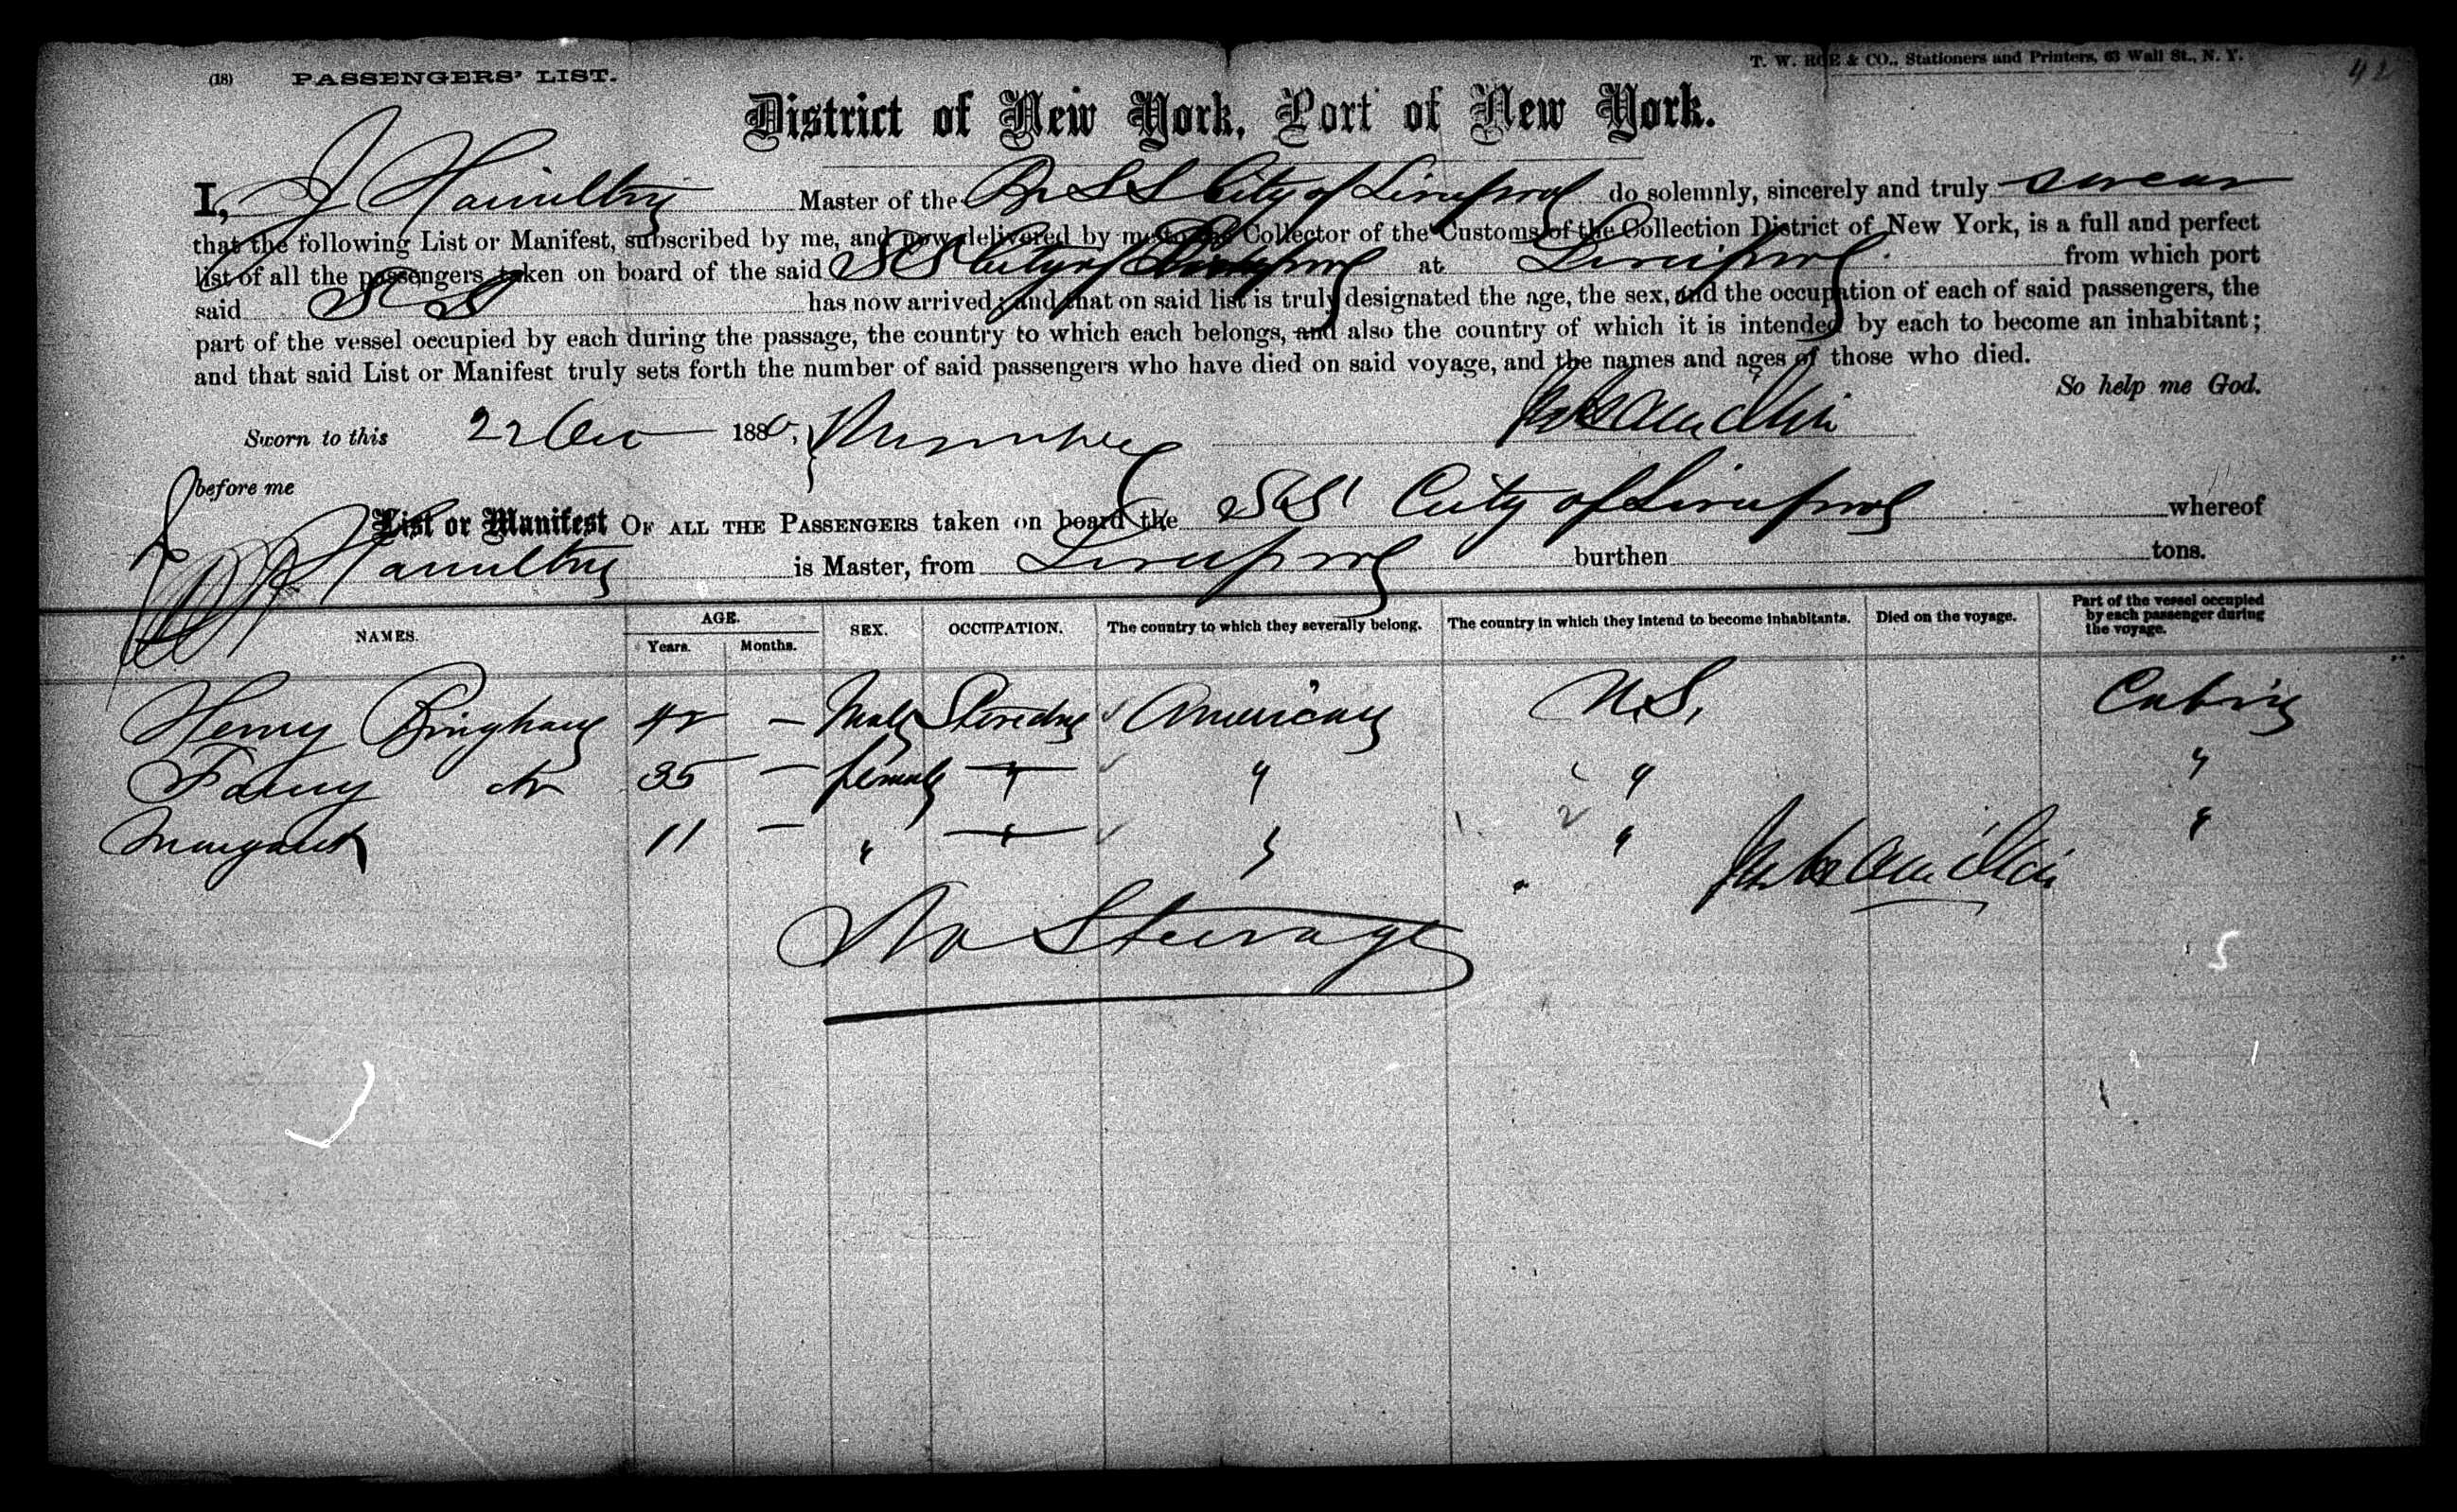 (18) PASSENGERS' LIST.
T. W. ROE & CO., Stationers and Printers, 63 Wall St., N. Y.
42
District of New York, Port of New York.
I, J Hamilton Master of the Br SS City of Liverpool do solemnly, sincerely and truly swear
that the following List or Manifest, subscribed by me, and now delivered by me to the Collector of the Customs of the Collection District of New York, is a full and perfect
list of all the passengers taken on board of the said SS City of Liverpool at Liverpool from which port
said SS has now arrived; and that on said list is truly designated the age, the sex, and the occupation of each of said passengers, the
part of the vessel occupied by each during the passage, the country to which each belongs, and also the country of which it is intended by each to become an inhabitant;
and that said List or Manifest truly sets forth the number of said passengers who have died on said voyage, and the names and ages of those who died.
So help me God.
Sworn to this 22 1880,
before me
List or Manifest OF ALL THE PASSENGERS taken on board the SS City of Liverpool whereof
J Hamilton is Master, from Liverpool burthen tons.
NAMES. AGE. Years. Months. SEX. OCCUPATION. The country to which they severally belong. The country in which they intend to become inhabitants. Died on the voyage. Part of the vessel occupied by each passenger during the voyage.
Henry Bingham 42 — Male American U.S. Cabin
Fanny do 35 — female " " " "
Margaret 11 — " " " " "
No Steerage